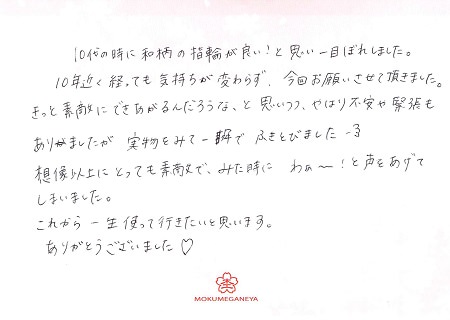 10代の時に和柄の指輪が良い!と思い一目ぼれしました。
10年近く経っても気持ちが変わらず、今回お願いさせて頂きました。
きっと素敵にできあがるんだろうな、と思いつつ、やはり不安や緊張も
ありましたが 実物をみて一瞬でふきとびました
想像以上にとっても素敵で、みた時に わぁ〜!と声をあげて
しまいました。
これから一生使って行きたいと思います。
ありがとうございました♡
MOKUMEGANEYA